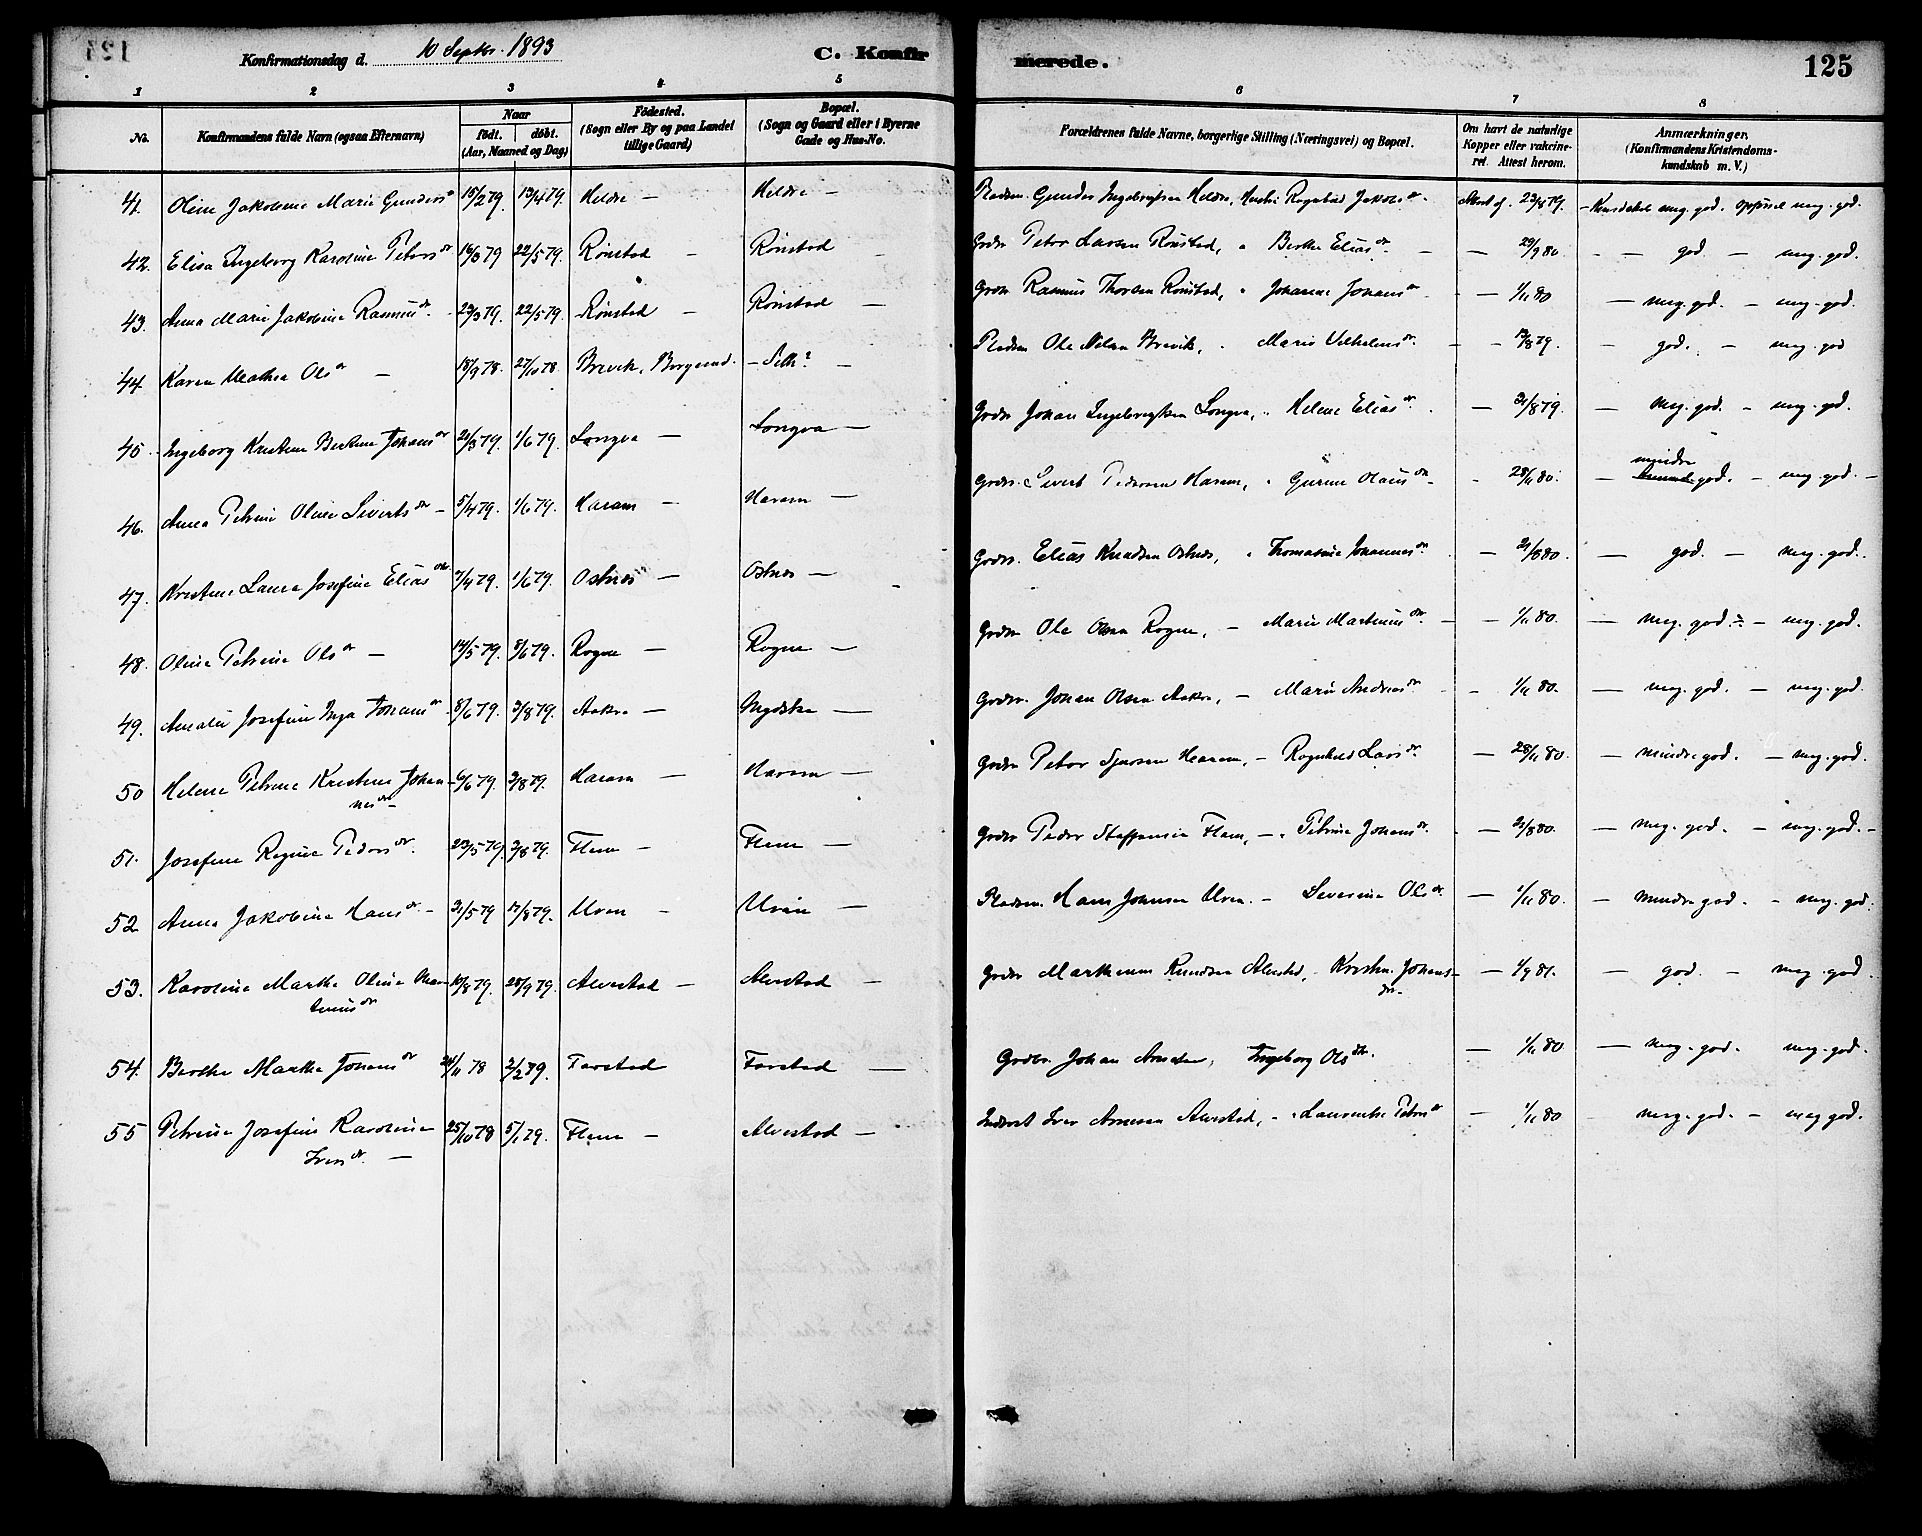 Konfirmationsdag d. 10 Septbr. 1893 C. Konfirmerede. 125
1 2 3 4 5 6 7 8
No. Konfirmandens fulde Navn (ogsaa Efternavn) Naar født. døbt. (Aar, Maaned og Dag) Fødested. (Sogn eller By og paa Landet tillige Gaard) Bopæl. (Sogn og Gaard eller i Byerne Gade og Hus-No. Forældrenes fulde Navne, borgerlige Stilling (Næringsvei) og Bopæl. Om havt de naturlige Kopper eller vakcineret. Attest herom. Anmærkninger, (Konfirmandens Kristendomskundskab m. V.)
41. Oline Jakobine Marie Gunders dr 15/2 79. 13/4 79. Heldre — Heldre — Pladsm. Gunder Ingebrigtsen Heldre, Ragnhild Jakobs dr. Attest af 23/8 79. – Kundskab meg. god. opførsel meg. god.
42. Elisa Ingeborg Karoline Peters dr 16/3 79 22/5 79. Rønstad – Rønstad – Grdbr. Peter Larsen Rønstad, " Berthe Elias dr. – – 29/9 80. – – god. – meg. god.
43. Anna Marie Jakobine Rasmus dr. 23/3 79. 22/5 79. Rønstad – Rønstad — Grdbr. Rasmus Thorsen Rønstad, " Johanne Johans dr – 1/11 80 — meg. god. – meg. god.
44. Karen Mathea Ols dr – 18/9 78. 27/10 78. Brevik, Borgund. – Pladsm. Ole Nilsen Brevik, " Marie Vilhelms dr. – /8 79. – god. – meg. god
45. Ingeborg Kristine Bertine Johans dr 21/3 79. 1/6 79. Longva — Longva — Grdbr. Johan Ingebrigtsen Longva, " Helene Elias dr. – 31/8 79. – meg. god. – meg. god.
46. Anna Petrine Oline Siverts dr – 5/4 79. 1/6 79. Haram – Haram — Grdbr. Sivert Pedersen Haram, " Gurine Olaus dr – 28/11 80. – mindre god. – meg. god. –
47. Kristine Laura Josefine Elias dtr 7/4 79. 1/6 79. Østnes — Østnes — Grdbr. Elias Knudsen Østnes, " Thomasine Johannes dr. – 21/8 80. — god. – meg. god.
48. Oline Petrine Ols dr — 14/5 79. 8/6 79. Rogne — Rogne — Grdbr. Ole Olsen Rogne, – Marie Martinus dr. – 1/11 80. – meg. god. – meg. god.
49. Amalie Josefine Inga Johans dr. 8/6 79. 3/8 79. Aakre — — Grdbr. Johan Olsen Aakre, – Marie Andreas dr – 1/11 80. — meg. god. – meg. god.
50 Helene Petrine Kristine Johannes dr – 6/6 79. 3/8 79. Haram — Haram — Grdbr. Peter Haram, – Ragnhild Lars dr. – 28/11 80. – mindre god. – meg. god.
51. Josefine Regine Peders dr. 23/5 79. 3/8 79. Flem — Flem — Grdbr. Peder Steffensen Flem, – " Petrine Johans dr. – 21/8 80. – meg. god. – meg. god. –
52. Anna Jakobine Hans dr. – 31/5 79 17/8 79. Ulven – Ulven — Pladsm. Hans Johnsen Ulven. – Severine Ols dr. – 1/11 80. – mindre god. – meg. god.
53. Karoline Marthe Oline Martinus dr 10/8 79. 28/9 79. Alvestad – Alvestad — Grdbr. Martinus Knudsen Alvestad, – Kristine Johansdr. – 1/9 81. – god. – meg. god.
54. Berthe Marthe Johans dr 24/11 78 2/2 79. Farstad Farstad — Grdbr. Johan Arnesen, Ingeborg Ols dtr. — 1/11 80 — meg. god. meg. god.
55 Petrine Josefine Karoline Ivers dr. – 25/10 78 5/1 79. Flem — Alvestad — Inderst Iver Arnesen Alvestad, – " Laurentse Peters dr – 1/11 80 – meg. god. – meg god.